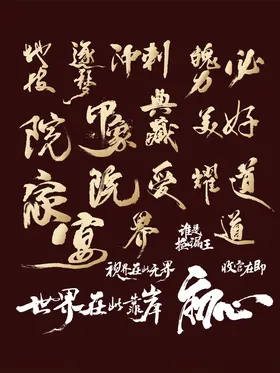 逐梦
冲刺
魄力
必
院
印象
典藏
美好
家宴
既
受
耀
道
界
道
谁是
捡漏王
视界在此无界
收官在即
世界在此靠岸
初心